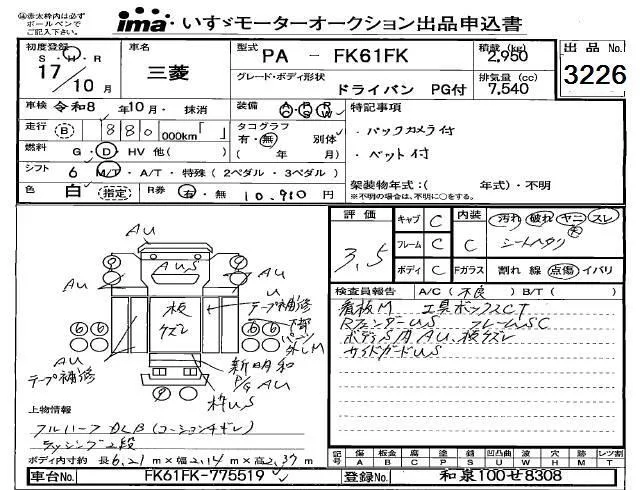 ㊟赤太枠内は必ず
ボールペンで
ご記入下さい。
ima いすゞモーターオークション出品申込書
初度登録 S・H・R 17/10月
車名 三菱
型式 PA - FK61FK
積載(kg) 2,950
出品No. 3226
グレード・ボディ形状 ドライバン PG付
排気量(cc) 7,540
車検 令和8年10月・抹消
装備 A/C P/S P/W
特記事項
走行 B 880 000km「 」
タコグラフ 有・無 別体 ( 年 月)
・バックカメラ付
燃料 G・D・HV 他( )
・ベット付
シフト 6 M/T・A/T・特殊(2ペダル・3ペダル)
架装物年式:( 年式)・不明
※不明の場合は、不明に○をする。
色 白 指定 R券 有・無 10,910円
評価 3.5
キャブ C
内装 C
汚れ 破れ ヤニ スレ
フレーム C
シートヘタリ
ボディ C
Fガラス 割れ 線 点傷 イバリ
検査員報告 A/C(不良)B/T( )
看板M 工具ボックスCT
RフェンダーUS フレームSC
ボディS角AU、板ズレ
サイドガードUS
AU
AUS
AU
AU
U
テープ補修
板
ズレ
下部
パーツ
外しM
⑥⑥
⑥⑥
AU
テープ補修
新明和
P/G AU
枠US
上物情報
フルハーフ DLB(コーションキレ)
ラッシング2段
ボディ内寸約 長6.21m×幅2.14m×高2.37m
記号 傷A 板金B 腐C 塗P 錆S 凹凸U 波W 穴H 跡M レツ割T
車台No. FK61FK-775519
登録No. 和泉100せ8308